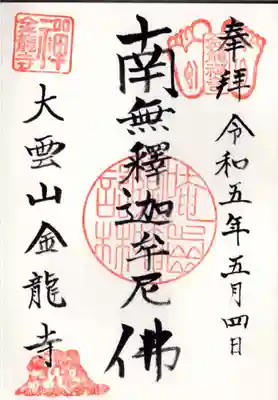 奉拝 令和五年五月四日
南無釋迦牟尼佛
大雲山金龍寺
禅